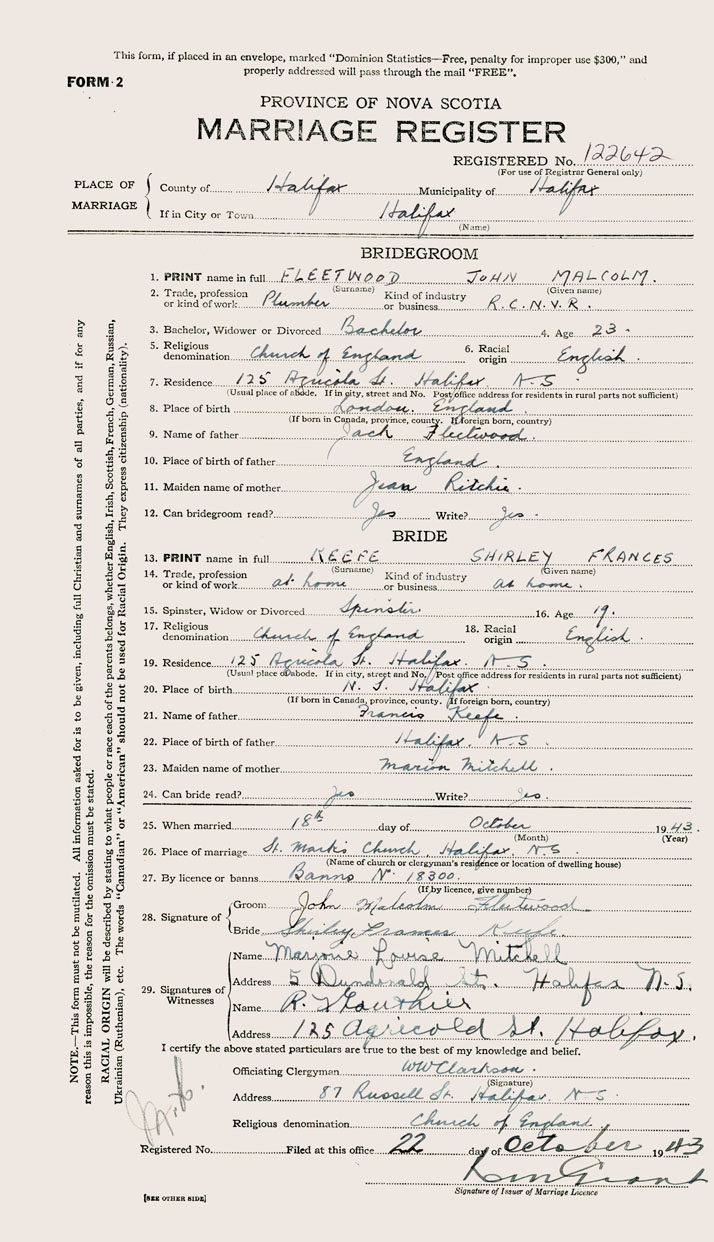 This form, if placed in an envelope, marked "Dominion Statistics—Free, penalty for improper use $300," and
properly addressed will pass through the mail "FREE".
FORM 2
PROVINCE OF NOVA SCOTIA
MARRIAGE REGISTER
REGISTERED No. 122642
(For use of Registrar General only)
PLACE OF MARRIAGE
County of Halifax Municipality of Halifax
If in City or Town Halifax
(Name)
BRIDEGROOM
1. PRINT name in full FLEETWOOD JOHN MALCOLM.
(Surname) (Given name)
2. Trade, profession or kind of work Plumber Kind of industry or business R.C.N.V.R.
3. Bachelor, Widower or Divorced Bachelor 4. Age 23
5. Religious denomination Church of England 6. Racial origin English.
7. Residence 125 Agricola St. Halifax N.S
(Usual place of abode. If in city, street and No. Post office address for residents in rural parts not sufficient)
8. Place of birth London. England.
(If born in Canada, province, county. If foreign born, country)
9. Name of father Jack Fleetwood.
10. Place of birth of father England.
11. Maiden name of mother Jean Ritchie.
12. Can bridegroom read? Yes Write? Yes.
BRIDE
13. PRINT name in full KEEFE SHIRLEY FRANCES
(Surname) (Given name)
14. Trade, profession or kind of work at home Kind of industry or business at home.
15. Spinster, Widow or Divorced Spinster 16. Age 19.
17. Religious denomination Church of England 18. Racial origin English.
19. Residence 125 Agricola St. Halifax. N.S.
(Usual place of abode. If in city, street and No. Post office address for residents in rural parts not sufficient)
20. Place of birth N.S. Halifax.
(If born in Canada, province, county. If foreign born, country)
21. Name of father Francis Keefe.
22. Place of birth of father Halifax. N.S
23. Maiden name of mother Marion Mitchell.
24. Can bride read? Yes Write? Yes.
25. When married 18th day of October 1943.
(Month) (Year)
26. Place of marriage St. Mark's Church, Halifax. N.S
(Name of church or clergyman's residence or location of dwelling house)
27. By licence or banns Banns No. 18300.
(If by licence, give number)
28. Signature of
Groom John Malcolm Fleetwood
Bride Shirley Frances Keefe.
29. Signatures of Witnesses
Name Marjorie Louise Mitchell
Address 5 Dundonald St. Halifax N.S.
Name R. Gauthier
Address 125 Agricola St. Halifax.
I certify the above stated particulars are true to the best of my knowledge and belief.
Officiating Clergyman WW Clarkson.
(Signature)
Address 87 Russell St. Halifax. N.S.
Religious denomination Church of England.
Registered No. Filed at this office 22 day of October 1943
Grant
Signature of Issuer of Marriage Licence
[SEE OTHER SIDE]
NOTE.—This form must not be mutilated. All information asked for is to be given, including full Christian and surnames of all parties, and if for any
reason this is impossible, the reason for the omission must be stated.
RACIAL ORIGIN will be described by stating to what people or race each of the parents belongs, whether English, Irish, Scottish, French, German, Russian,
Ukrainian (Ruthenian), etc. The words "Canadian" or "American" should not be used for Racial Origin. They express citizenship (nationality).